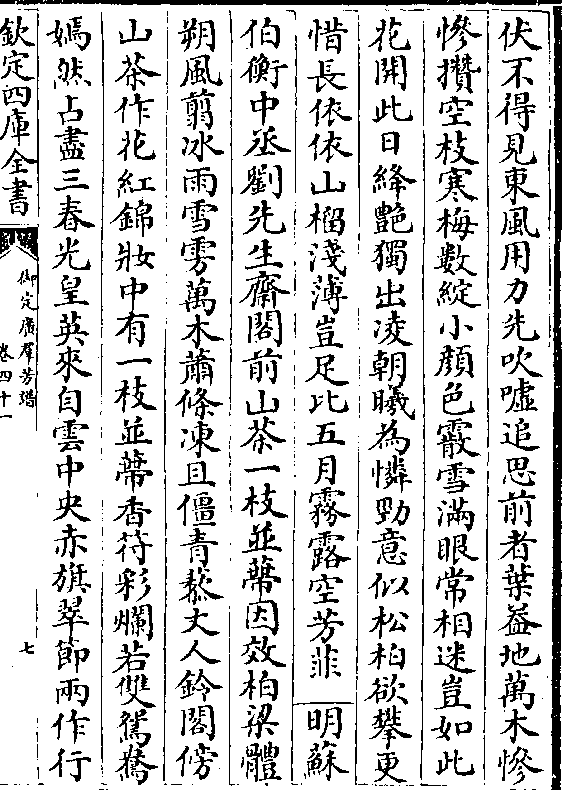 伏不得見東風用力先吹噓追思前者葉蓋地萬木慘
慘攢空枝寒梅數綻小顔色霰雪滿眼常相迷豈如此
花開此日絳艷獨出凌朝曦為憐勁意似松柏欲攀更
惜長依依山榴淺薄豈足比五月霧露空芳菲 明蘇
伯衡中丞劉先生齋閣前山茶一枝並蔕因效柏梁體
朔風翦冰雨雪雱萬木蕭條凍且僵青藜丈人鈴閣傍
山茶作花紅錦妝中有一枝並蔕香符彩爛若雙鴛鴦
嫣然占盡三春光皇英來自雲中央赤旗翠節兩作行
欽定四庫全書
御定廣羣芳譜
卷四十一
七